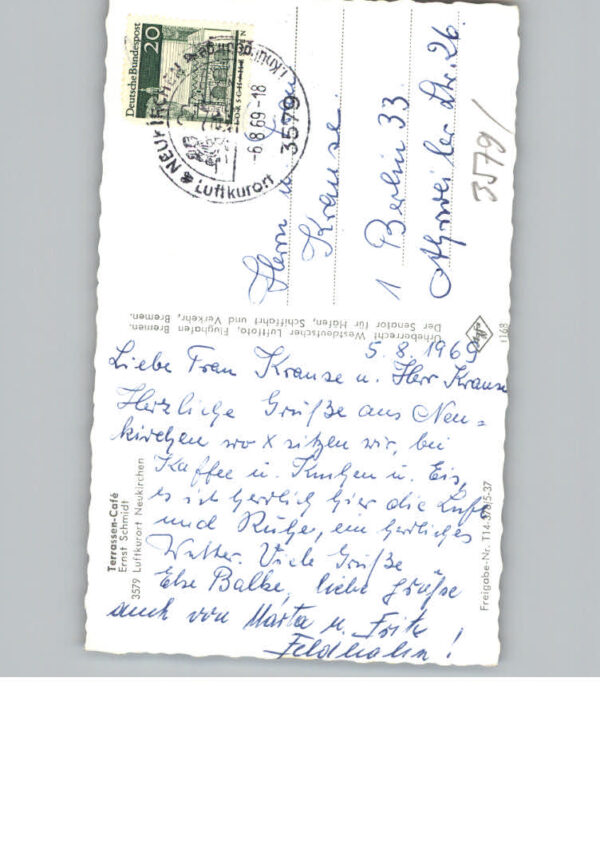 Deutsche Bundespost
20
NEUKIRCHEN
Luftkurort
-6.8.69-18
3579
Herrn u. Frau
Krause
1 Berlin 33
Ahrweiler Str. 26.
3579/
Urheberrecht Westdeutscher Luftfoto, Flughafen Bremen.
Der Senator für Häfen, Schiffahrt und Verkehr, Bremen.
1168
5. 8. 1969
Liebe Frau Krause u. Herr Krause
Herzliche Grüße aus Neu=
kirchen wo x sitzen wir, bei
Kaffee u. Kuchen u. Eis,
es ist herrlich hier die Luft
und Ruhe, ein herliches
Wetter. Viele Grüße
Else Balke, liebe Grüße
auch von Marta u. Fritz
Feldhahn!
Terrassen-Café
Ernst Schmidt
3579 Luftkurort Neukirchen
Freigabe-Nr. T14-878/5-37